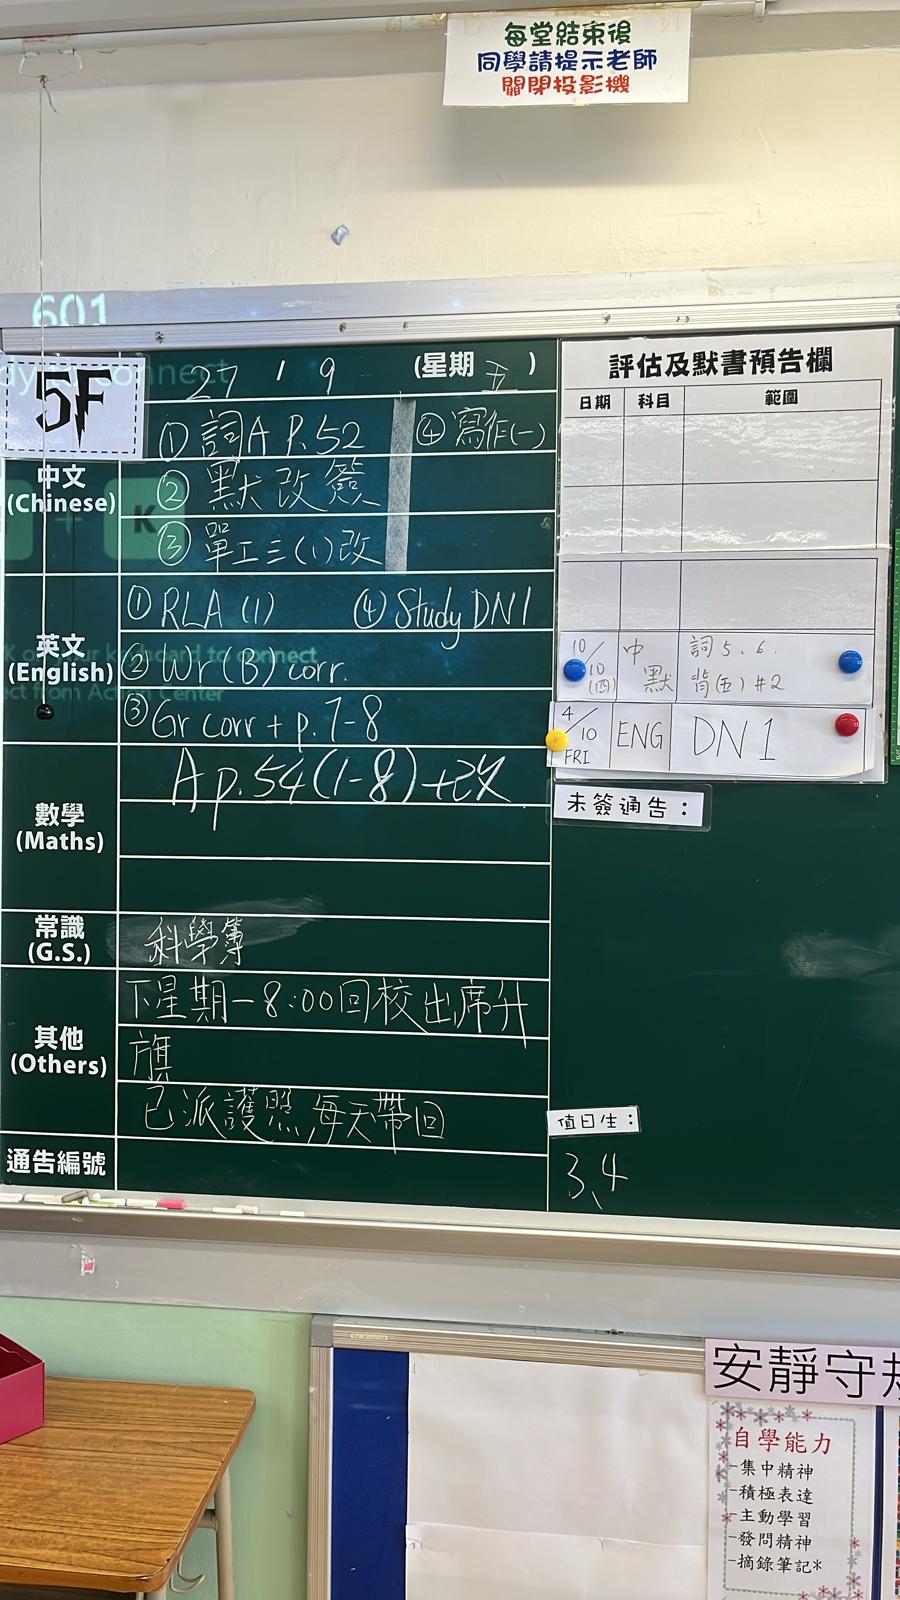 每堂結束後
同學請提示老師
關閉投影機
601
5F
27 / 9 (星期五)
中文
(Chinese)
① 詞A P.52 ④ 寫作(一)
② 默改簽
K
③ 單工三(1)改
英文
(English)
① RLA (1) ④ Study DN1
② Wr (B) corr.
③ Gr corr + p.7-8
數學
(Maths)
A p.54 (1-8) +
常識
(G.S.)
科學簿
其他
(Others)
下星期一8:00回校出席升
旗
已派護照,每天帶回
通告編號
評估及默書預告欄
日期 科目 範圍
10/10(四) 中默 詞5、6.
背(五) #2
4/10 FRI ENG DN 1
未簽通告:
值日生:
3、4
安靜守
自學能力
-集中精神
-積極表達
-主動學習
-發問精神
-摘錄筆記*